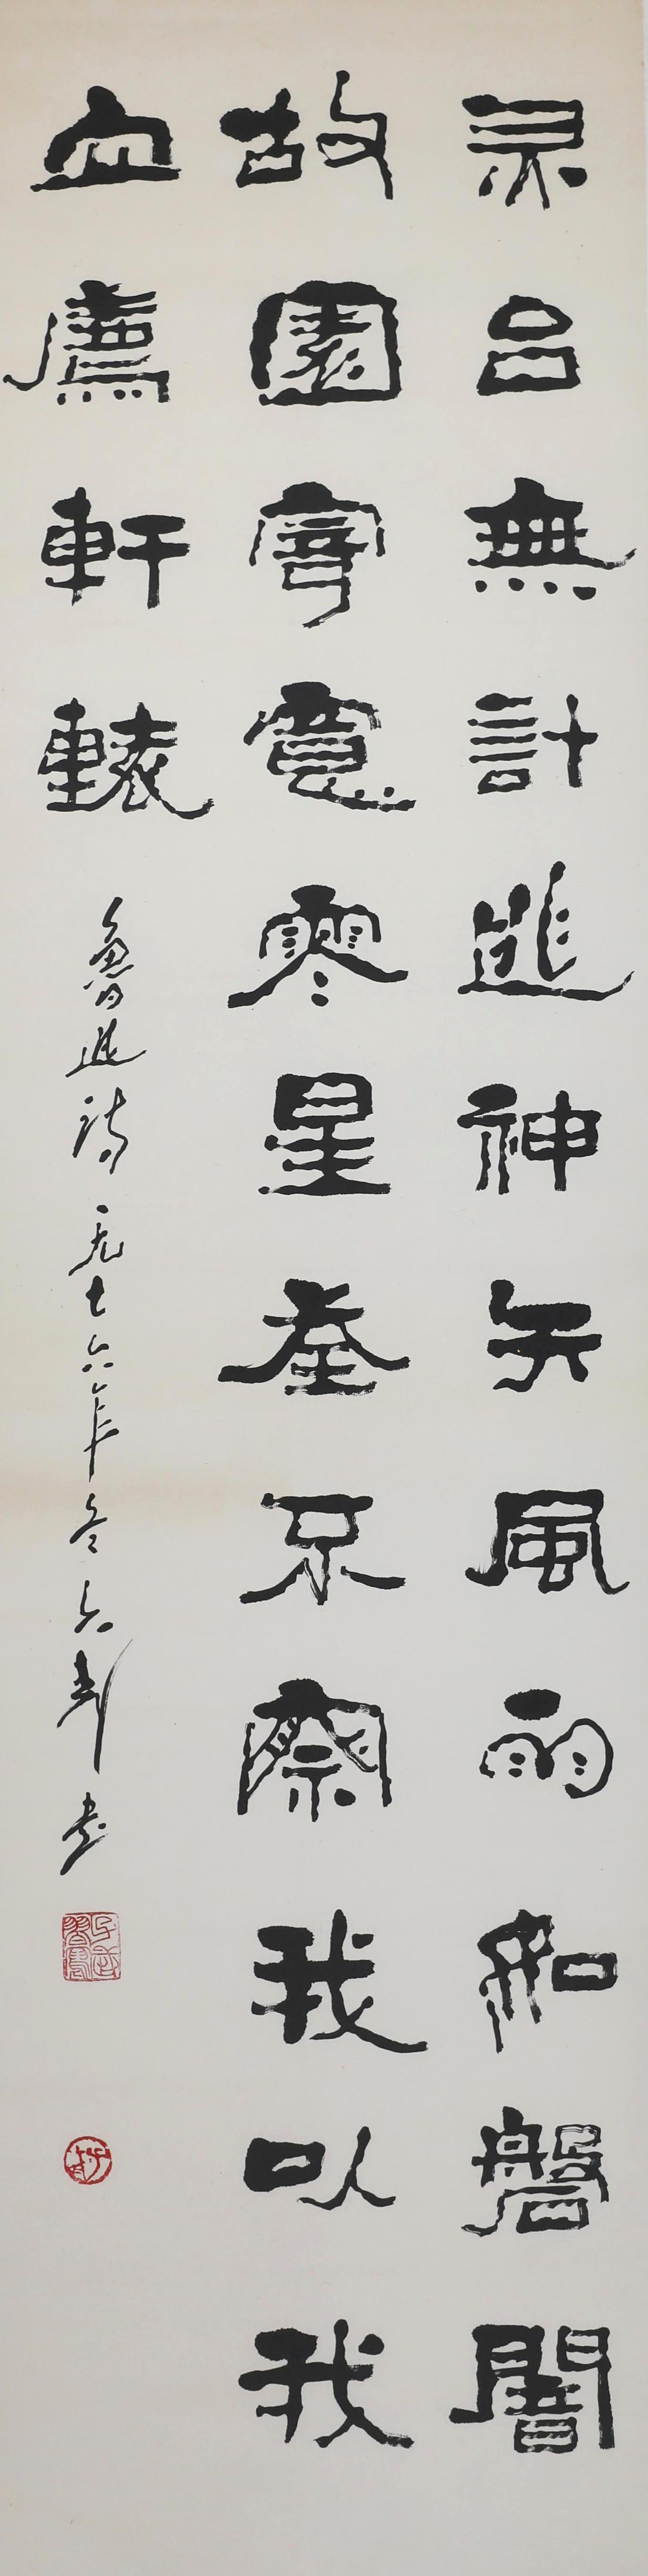 灵台無計逃神矢風雨如磐闇
故園寄意寒星荃不察我以我
血薦軒轅
魯迅詩一九七六年冬書